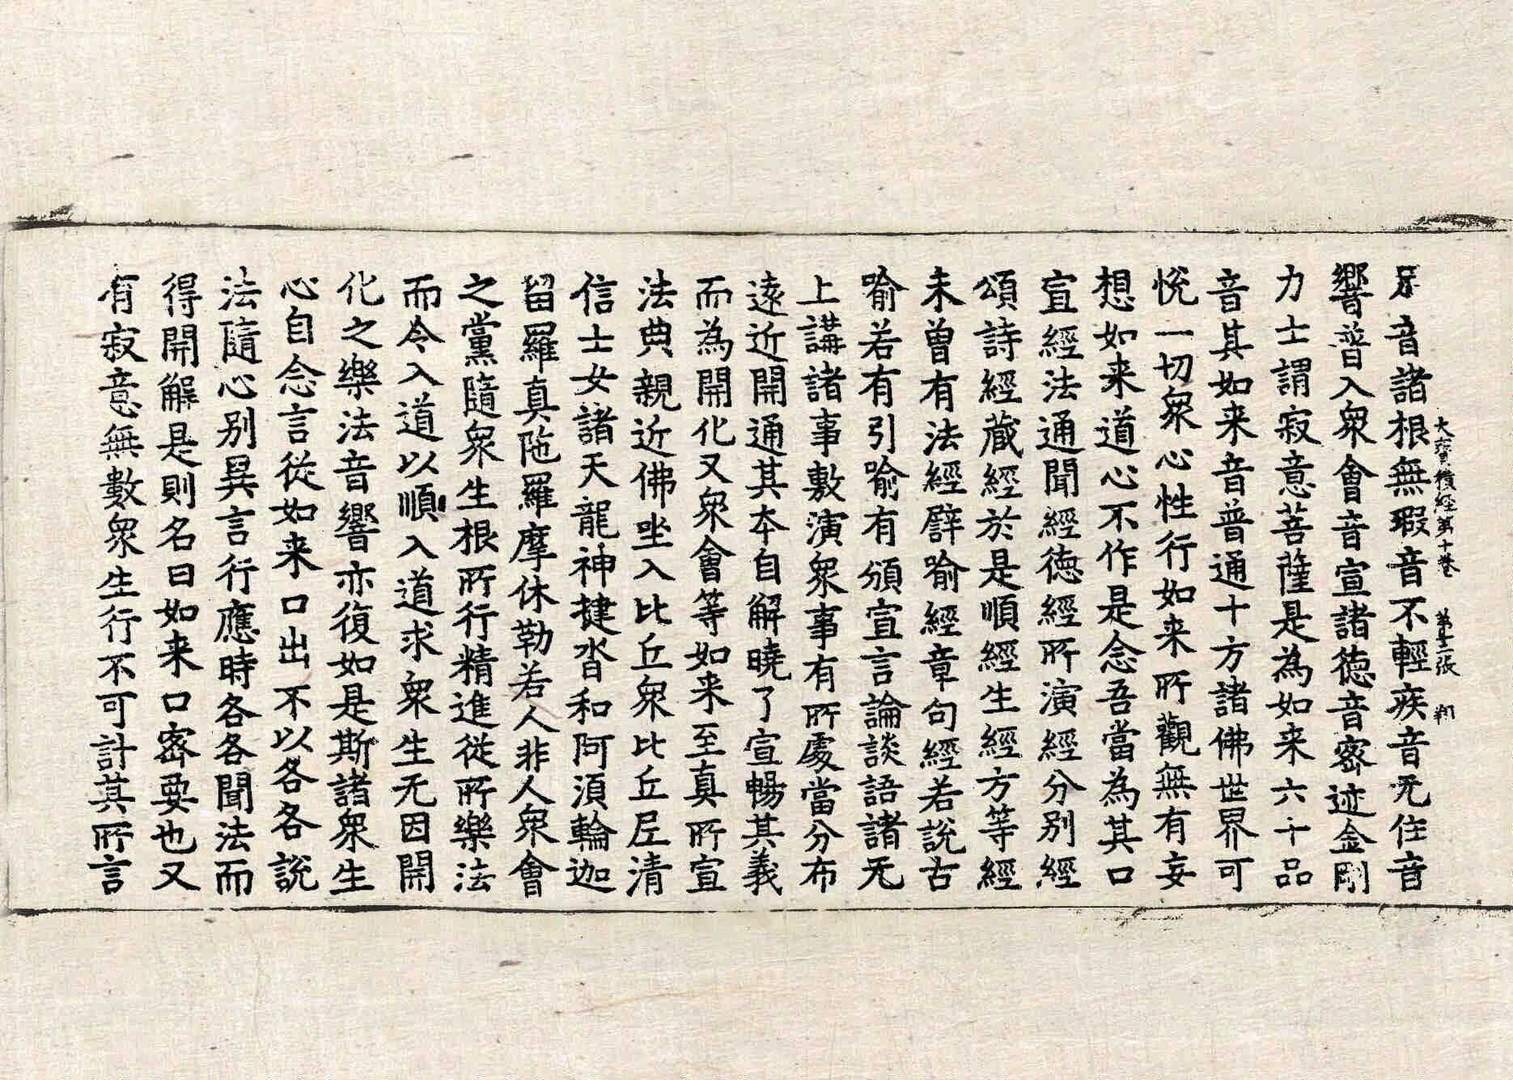 大寶積經第十卷 第十二張 翔
尽音諸根無瑕音不輕疾音无住音
響普入衆會音宣諸德音密迹金剛
力士謂寂意菩薩是為如来六十品
音其如来音普通十方諸佛世界可
恱一切衆心性行如来所觀無有妄
想如来道心不作是念吾當為其口
宣經法通聞經德經所演經分別經
頌詩經蔵經於是順經生經方等經
未曽有法經譬喻經章句經若説古
喻若有引喻有頒宣言論談語諸无
上講諸事敷演衆事有所處當分布
遠近開通其本自解曉了宣暢其義
而為開化又衆會等如来至真所宣
法典親近佛坐入比丘衆比丘尼清
信士女諸天龍神揵沓和阿湏輪迦
留羅真陁羅摩休勒若人非人衆會
之黨隨衆生根所行精進從所樂法
而令入道以順入道求衆生无因開
化之樂法音響亦復如是斯諸衆生
心自念言從如来口出不以各各説
法隨心别異言行應時各各聞法而
得開解是則名曰如来口密要也又
有寂意無數衆生行不可計其所言